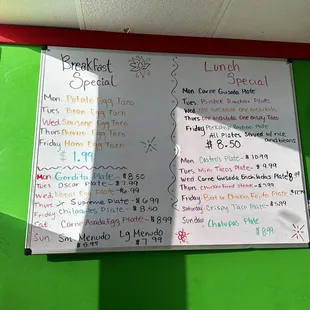 Breakfast
Special
Mon Potato Egg Taco
Tues Bean Egg Taco
Wed Sausage Egg Taco
Thurs Chorizo Egg Taco
Friday Ham Egg Taco
$1.99
Mon Gordita Plate - $8.50
Tues Oscar Plate - $7.99
Wed Plate - $8.99
Thurs Jr Supreme Plate - $6.99
Friday Chilaquiles Plate - $8.50
Sat. Carne Asada Egg Plate - $8.99
Sun Sm Menudo Lg Menudo
$6.99 $7.99
Lunch
Special
Mon Carne Guisada Plate
Tues Plate
Wed
Thurs one enchilada, one crispy Taco
Friday Plate
All Plates Served w/ rice and beans
$8.50
Mon Castro's Plate - $10.99
Tues Mini Tacos Plate - $9.99
Wed Carne Guisada Enchiladas Plate $8.99
Thurs Chicken Fried Steak - $8.99
Friday Beef or Chicken Fajita Plate
Saturday Crispy Taco Plate - $8.99
Sunday Chalupas Plate
$8.99